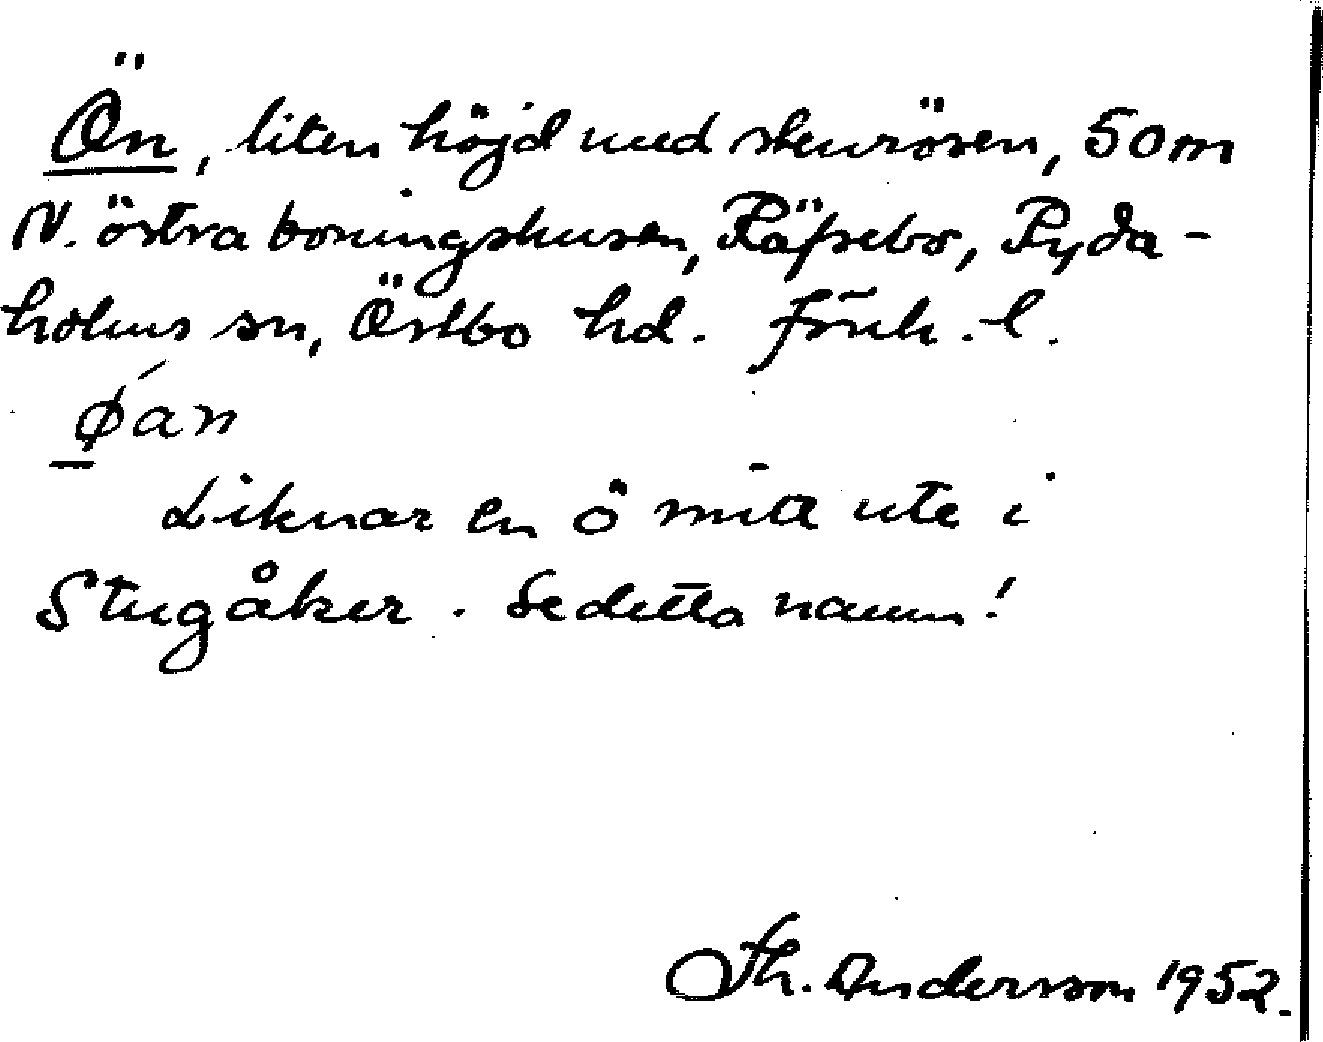 Ön, liten höjd med stenrösen, 50 m
N. östra boningshusen, Räfsebo, Ryda-
holms sn, Östbo hd.
øan
Liknar en ö mitt ute i
Stugåker. Se detta namn!
Th. Andersson 1952.